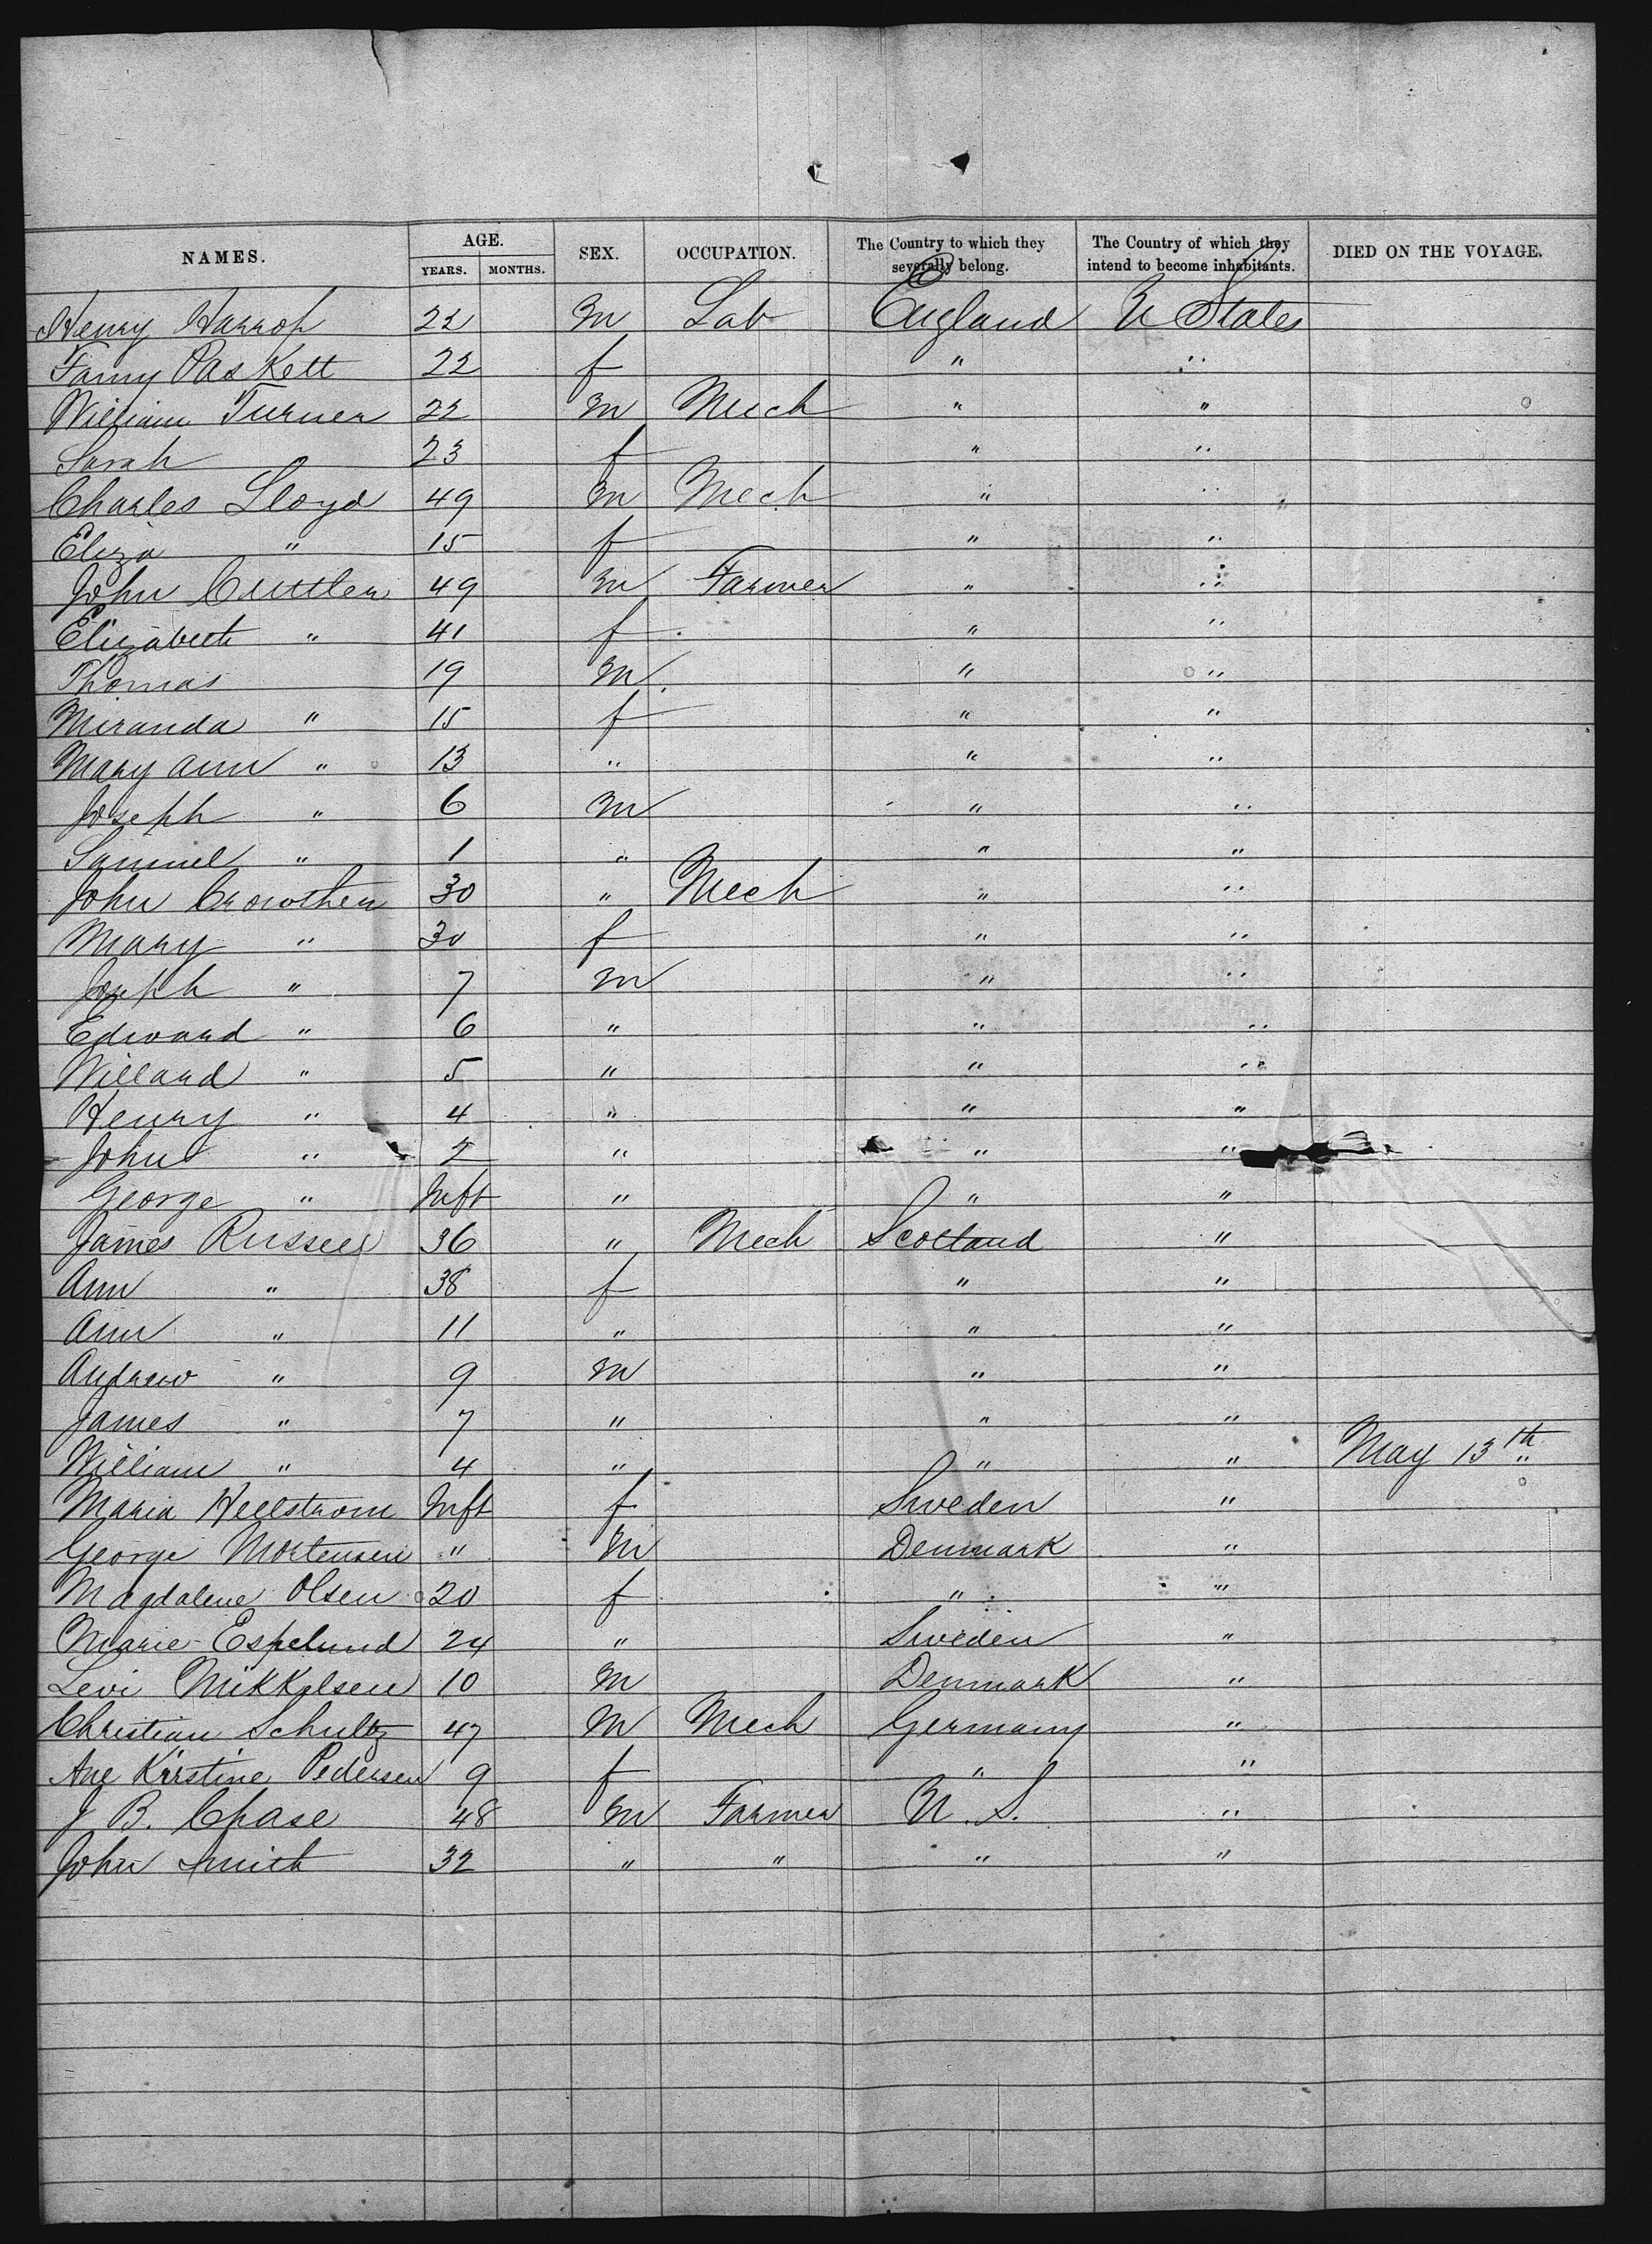 NAMES. AGE. SEX. OCCUPATION. The Country to which they severally belong. The Country of which they intend to become inhabitants. DIED ON THE VOYAGE.
YEARS. MONTHS.
Henry Harrop 22 m Lab England U States
Fanny Paskett 22 f " "
William Turner 22 m Mech " "
Sarah 23 f " "
Charles Lloyd 49 m Mech " "
Eliza " 15 f " "
John Cuttler 49 m Farmer " "
Elizabeth " 41 f " "
Thomas 19 m " "
Miranda " 15 f " "
Mary Ann " 13 " " "
Joseph " 6 m " "
Samuel " 1 " " "
John Crowther 30 " Mech " "
Mary " 30 f " "
Joseph " 7 m " "
Edward " 6 " " "
Willard " 5 " " "
Henry " 4 " " "
John " 2 " " "
George " Inft " " "
James Russell 36 " Mech Scotland "
Ann " 38 f " "
Ann " 11 " " "
Andrew " 9 m " "
James " 7 " " "
William " 4 " " " May 13th
Maria Hellstrom Inft f Sweden "
George Mortensen " m Denmark "
Magdalene Olsen 20 f " "
Marie Espelund 24 " Sweden "
Levi Mikkelsen 10 m Denmark "
Christian Schultz 47 m Mech Germany "
Ane Kirstine Pedersen 9 f " "
J B. Chase 48 m Farmer U. S. "
John Smith 32 " " " "